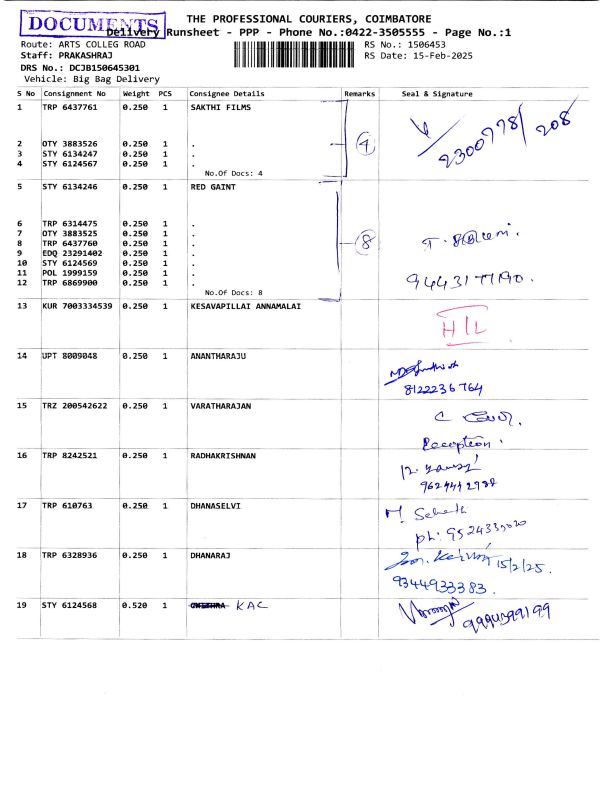 DOCUMENTS
THE PROFESSIONAL COURIERS, COIMBATORE
Delivery Runsheet - PPP - Phone No.:0422-3505555 - Page No.:1
Route: ARTS COLLEG ROAD RS No.: 1506453
Staff: PRAKASHRAJ RS Date: 15-Feb-2025
DRS No.: DCJB150645301
Vehicle: Big Bag Delivery
S No Consignment No Weight PCS Consignee Details Remarks Seal & Signature
1 TRP 6437761 0.250 1 SAKTHI FILMS
2300778/208
2 OTY 3883526 0.250 1 . 4
3 STY 6134247 0.250 1 .
4 STY 6124567 0.250 1 .
No.Of Docs: 4
5 STY 6134246 0.250 1 RED GAINT
6 TRP 6314475 0.250 1 .
7 OTY 3883525 0.250 1 .
8 TRP 6437760 0.250 1 . 8
9 EDQ 23291402 0.250 1 .
10 STY 6124569 0.250 1 .
11 POL 1999159 0.250 1 .
12 TRP 6869900 0.250 1 .
9443177190.
No.Of Docs: 8
13 KUR 7003334539 0.250 1 KESAVAPILLAI ANNAMALAI
H/L
14 UPT 8009048 0.250 1 ANANTHARAJU
8122236764
15 TRZ 200542622 0.250 1 VARATHARAJAN
Reception.
16 TRP 8242521 0.250 1 RADHAKRISHNAN
17 TRP 610763 0.250 1 DHANASELVI
ph: 9524333020
18 TRP 6328936 0.250 1 DHANARAJ
15/2/25.
9344933383.
19 STY 6124568 0.520 1 KAC
9994399199